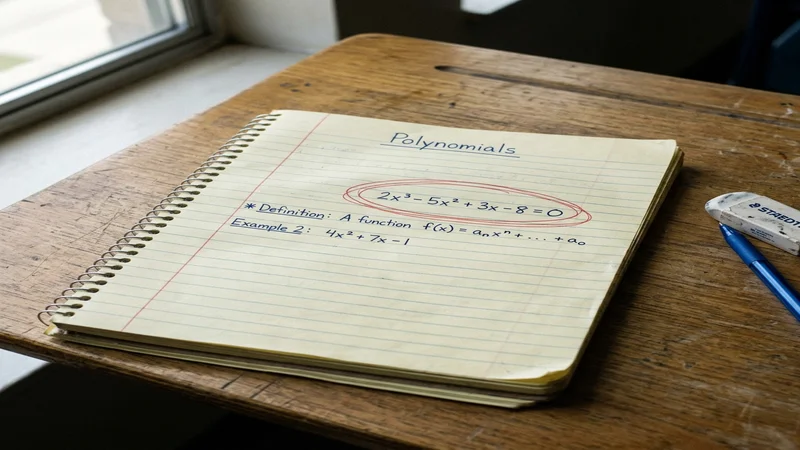 Polynomials
2x³ – 5x² + 3x – 8 = 0
* Definition: A function f(x) = aₙxⁿ + ... + a₀
Example 2: 4x² + 7x – 1